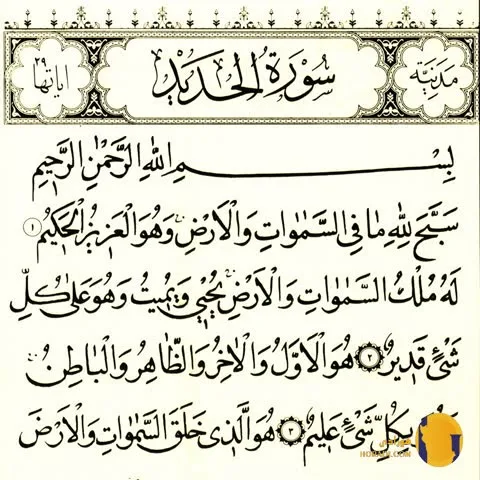 مدنية سورة الحديد آياتها ٢٩
بِسْمِ اللهِ الرَّحْمٰنِ الرَّحِيمِ
سَبَّحَ لِلّٰهِ مَا فِي السَّمٰوَاتِ وَالْأَرْضِ وَهُوَ الْعَزِيزُ الْحَكِيمُ ١
لَهُ مُلْكُ السَّمٰوَاتِ وَالْأَرْضِ يُحْيِي وَيُمِيتُ وَهُوَ عَلَىٰ كُلِّ
شَيْءٍ قَدِيرٌ ٢ هُوَ الْأَوَّلُ وَالْاٰخِرُ وَالظَّاهِرُ وَالْبَاطِنُ
بِكُلِّ شَيْءٍ عَلِيمٌ ٣ هُوَ الَّذِي خَلَقَ السَّمٰوَاتِ وَالْأَرْضَ